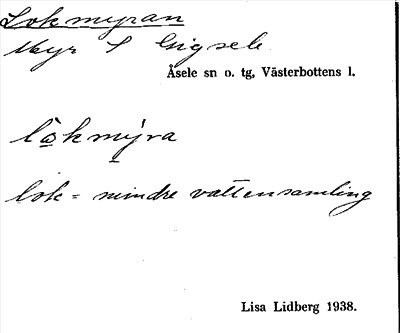 Lokmyran
Myr S Gigsele
Åsele sn o. tg, Västerbottens l.
lo̲kmỳ̲ra
lok = mindre vattensamling
Lisa Lidberg 1938.